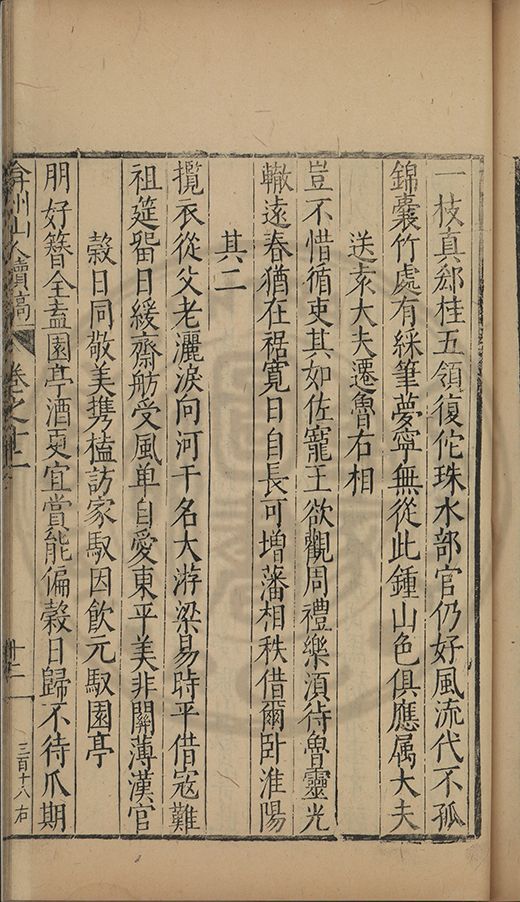 一枝真郄桂五領復佗珠水部官仍好風流代不孤
錦囊竹處有綵筆夢寧無從此鍾山色俱應属大夫
送袁大夫遷魯右相
豈不惜循吏其如佐寵王欲觀周禮樂須待魯靈光
轍遠春猶在裾寬日自長可增藩相秩借爾卧淮陽
其二
攬衣從父老灑淚向河干名大游梁易時平借寇難
祖筵畱日緩齋舫受風单自愛東平美非關薄漢官
穀日同敬美携榼訪家馭因飲元馭園亭
朋好簪全盍園亭酒更宜賞能偏穀日歸不待爪期
弇州山人續稿
卷之十二
十二
三百十八右